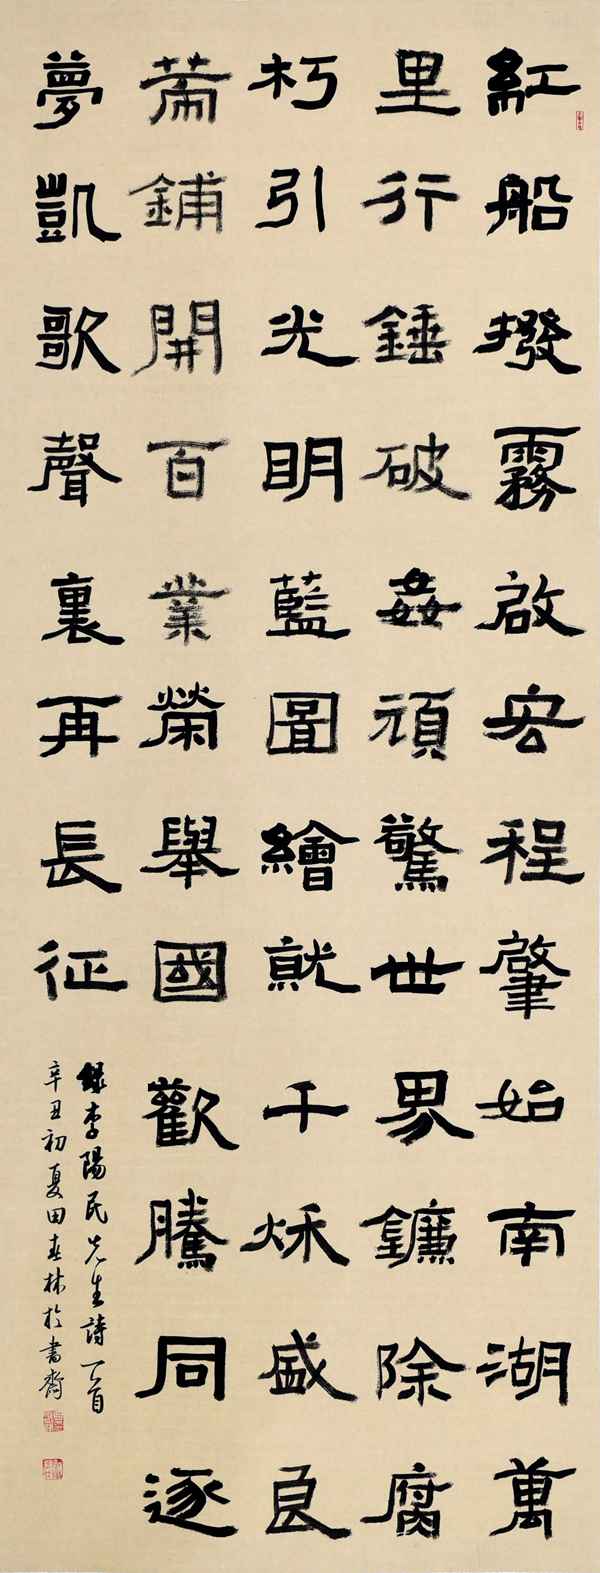 紅船撥霧啟宏程肇始南湖萬
里行錘破姦頑驚世界鐮除腐
朽引光明藍圖繪就千秌盛良
策鋪開百業榮舉國歡騰同逐
夢凱歌聲裏再長征
録李陽民先生詩一首
辛丑初夏田春林於書齋